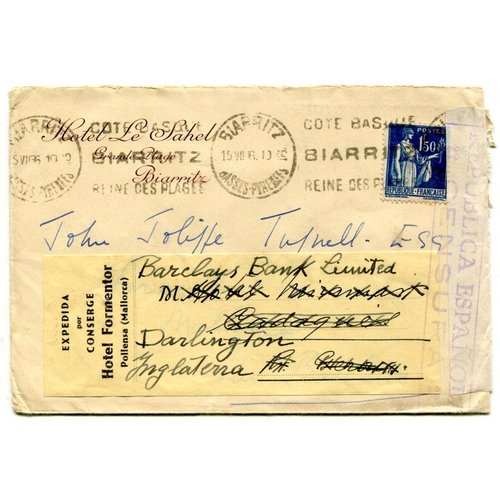 Hotel Le Sahel
Grande Plage
Biarritz
BIARRITZ
BASSES-PYRENEES
COTE BASQUE
BIARRITZ
REINE DES PLAGES
BIARRITZ
15 VII 36
BASSES-PYRENEES
COTE BASQUE
BIARRITZ
REINE DES PLAGES
POSTES
1,50
REPUBLIQUE-FRANÇAISE
REPUBLICA ESPAÑOLA
CENSURA
John Joliffe Tufnell. ESQ
EXPEDIDA
por
CONSERGE
Hotel Formentor
Pollensa (Mallorca)
Barclays Bank Limited
M. Hotel Miramar
Cadaqués
Darlington
Inglaterra